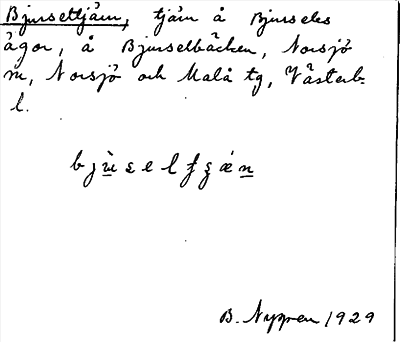 Bjurseltjärn, tjärn å Bjurseles
ägor, å Bjurselbäcken, Norsjö
sn, Norsjö och Malå tg, Västerb.
l.
B. Nyppen 1929